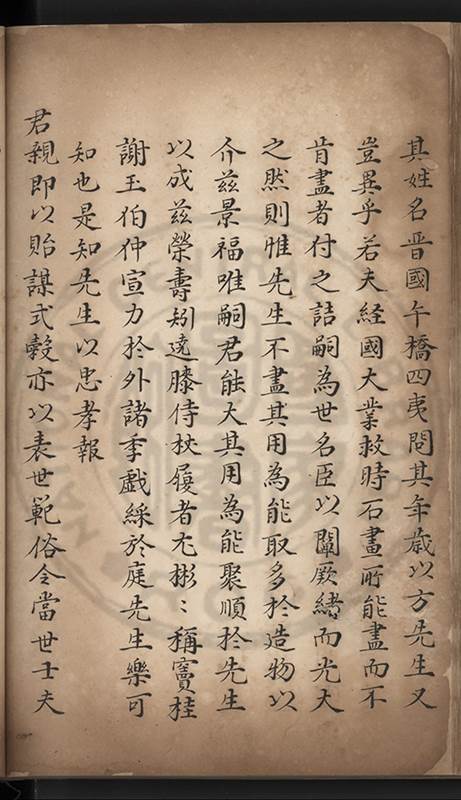 其姓名晋國午橋四夷問其年歲以方先生又
豈異乎若夫経國大業救時石畫所能盡而不
肯盡者付之詰嗣為世名臣以闡厥緒而光大
之然則惟先生不盡其用為能取多於造物以
介茲景福唯嗣君能大其用為能聚順於先生
以成茲榮壽矧遶膝侍杖屨者尤彬〻稱竇桂
謝玉伯仲宣力於外諸季戲綵於庭先生樂可
知也是知先生以忠孝報
君親即以貽謀式穀亦以表世範俗令當世士夫